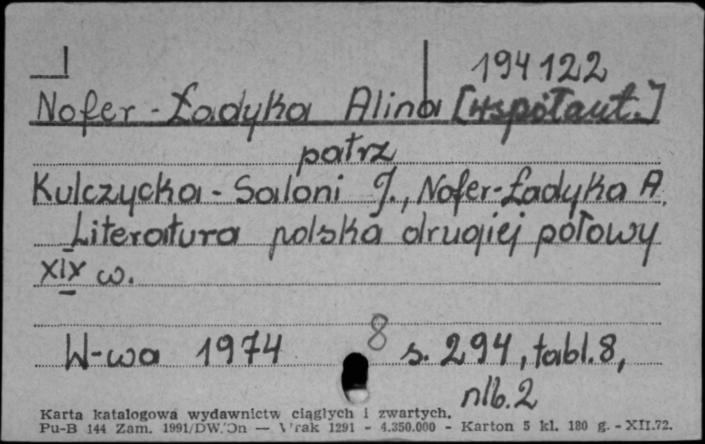 194122
Nofer-Ładyka Alina [współaut.]
patrz
Kulczycka-Saloni J., Nofer-Ładyka A.
Literatura polska drugiej połowy
XIX w.
W-wa 1974 8 s. 294, tabl. 8,
nlb. 2
Karta katalogowa wydawnictw ciągłych i zwartych.
Pu-B 144 Zam. 1991/DW. — 1291 - 4.350.000 - Karton 5 kl. 180 g. - XII.72.